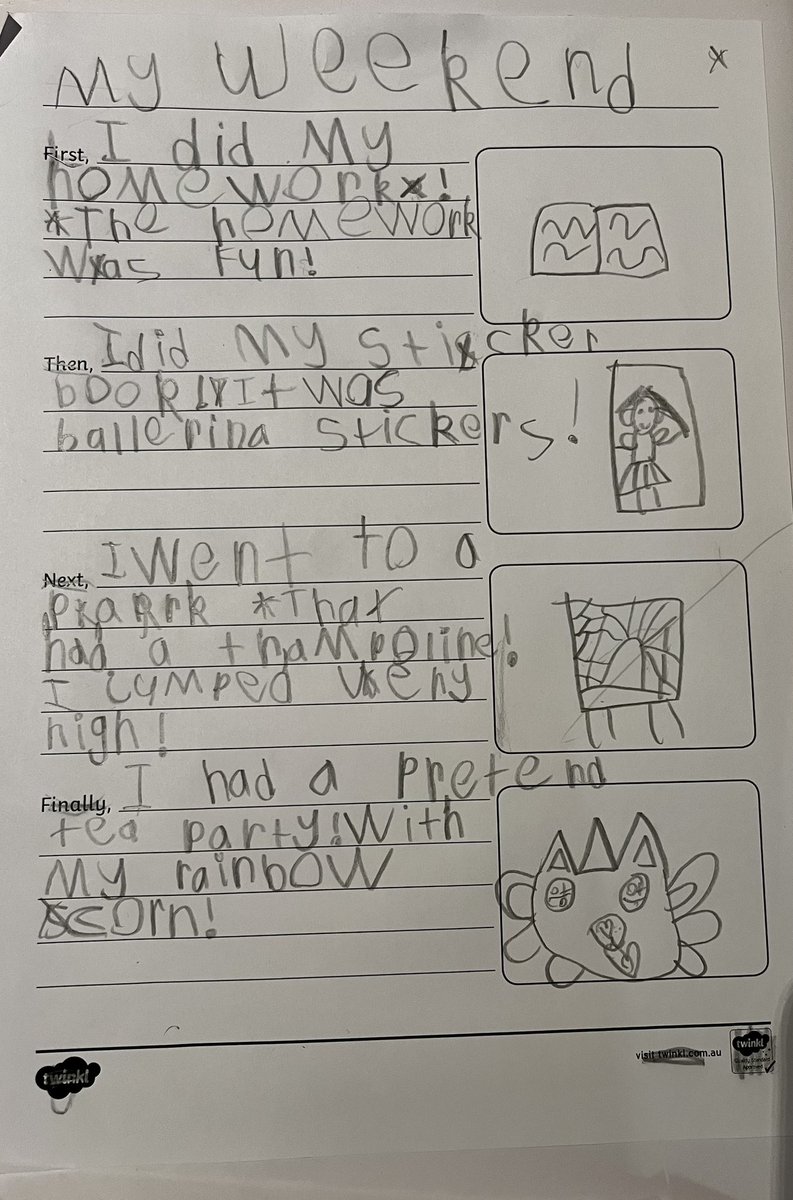 My Weekend
First, I did My
homework!
*The homework
was fun!
Then, I did My sticker
book It was
ballerina stickers!
Next, I went to a
park *That
had a trampoline!
I jumped very
high!
Finally, I had a pretend
tea party! With
My rainbow
corn!
twinkl
visit twinkl.com.au
twinkl
Quality Standard
Approved